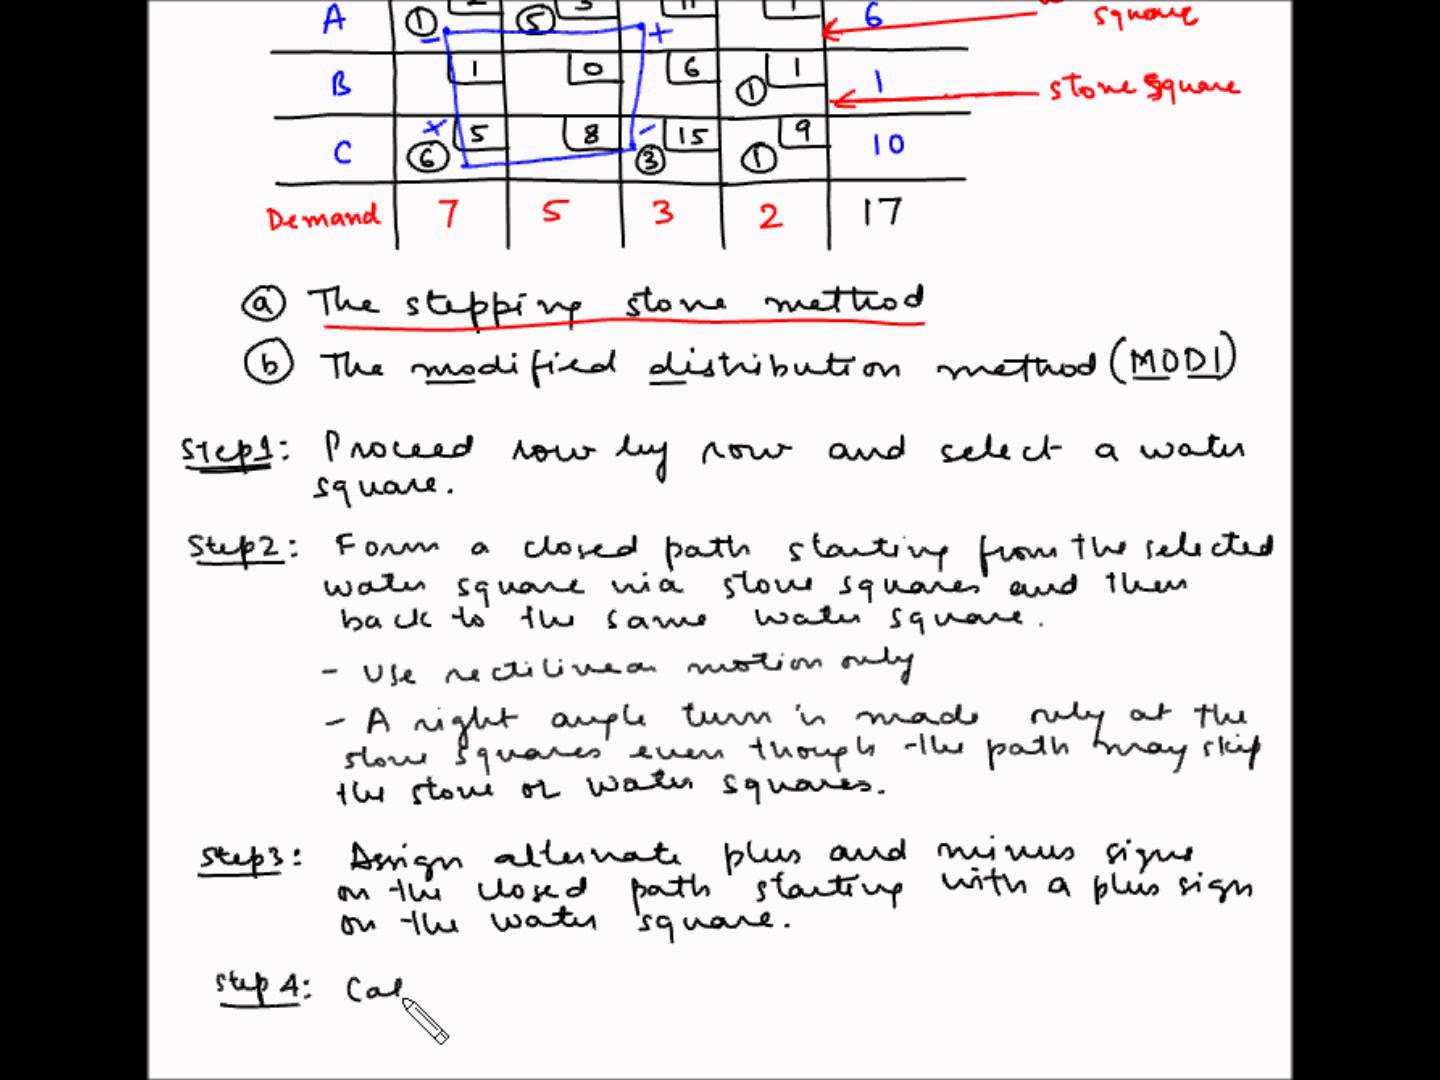 A ① ⑤ + 6 square
−
B 1 0 6 ① 1 1 stone square
C + ⑥ 5 8 − ③ 15 ① 9 10
Demand 7 5 3 2 17
ⓐ The stepping stone method
ⓑ The modified distribution method (MODI)
Step1: Proceed row by row and select a water
square.
Step2: Form a closed path starting from the selected
water square via stone squares and then
back to the same water square.
- Use rectilinear motion only
- A right angle turn is made only at the
stone squares even though the path may skip
the stone or water squares.
Step3: Assign alternate plus and minus signs
on the closed path starting with a plus sign
on the water square.
Step 4: Cal